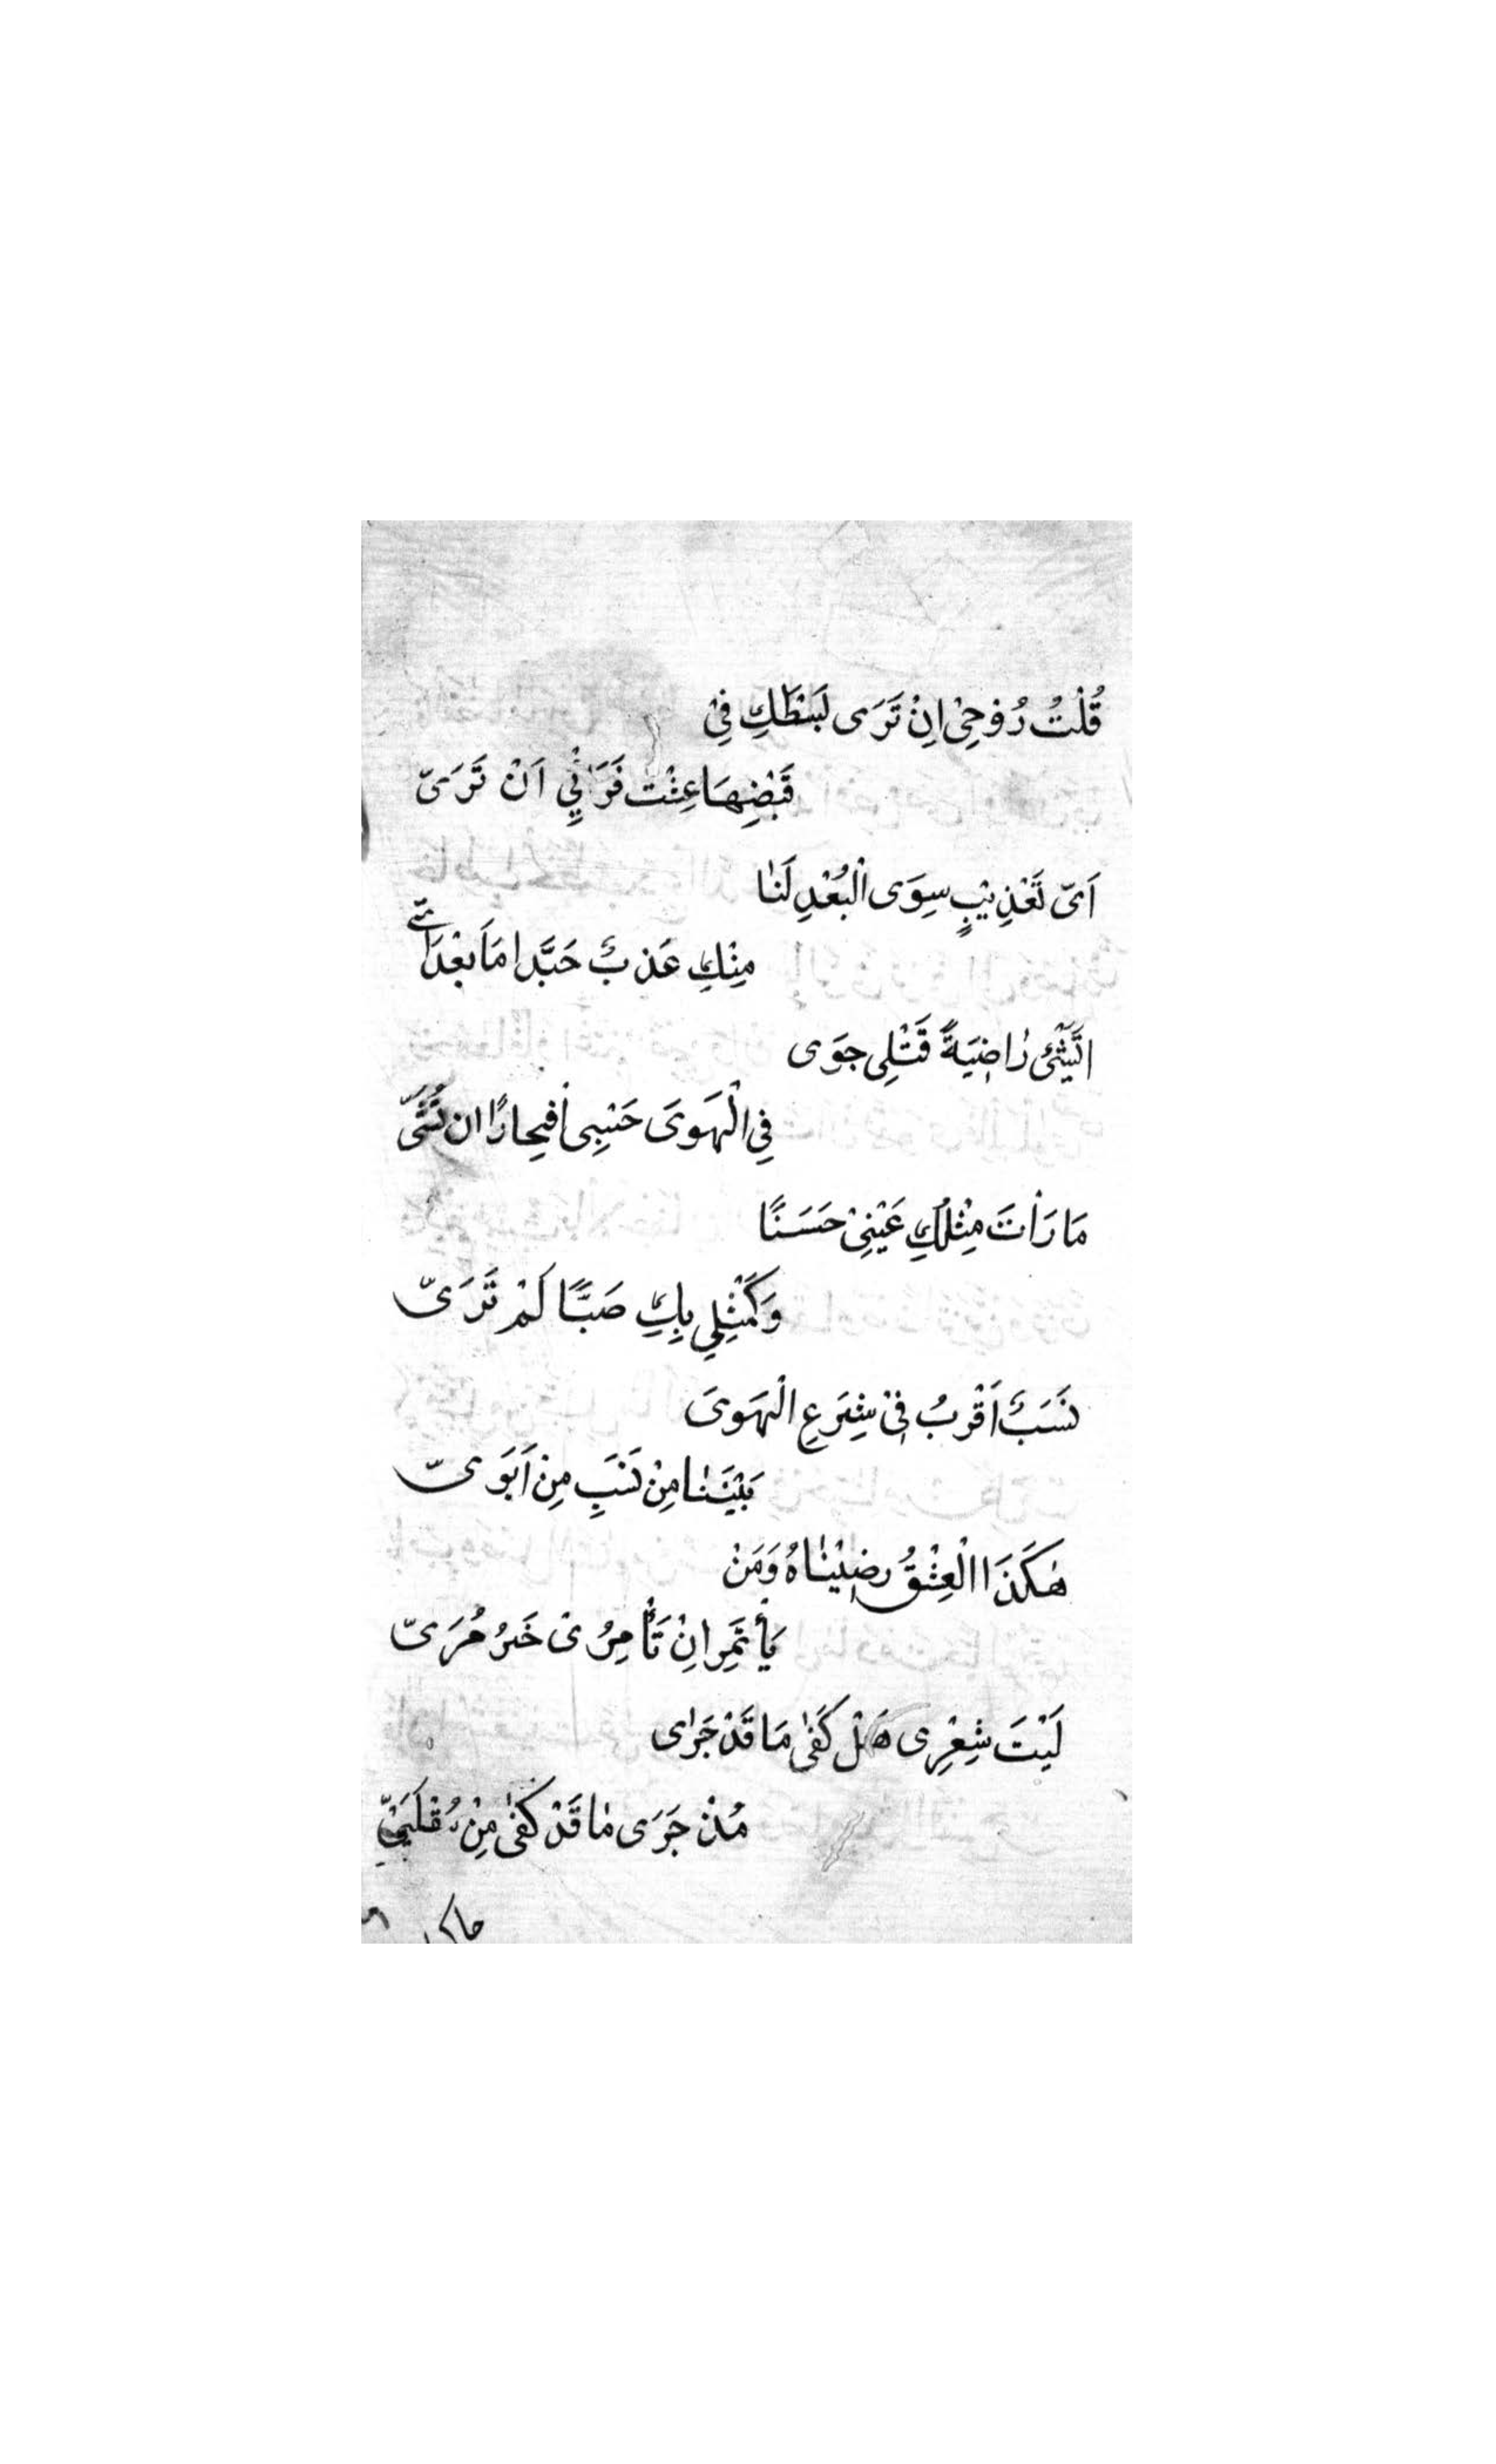 قُلْتُ رُوْحِىْ اِنْ تَرَى بَسْطَكِ فِىْ
قَبْضِهَا عِشْت فَرَاْيِي اَنْ تَرَىّ
اَىّ تَعْذِيْبٍ سِوَى الْبُعْدِ لَنَا
مِنْكِ عَذبٌ حَبَّدا مَا بَعْدَ اَىّ
رَاضِيَةً قَتْلِى جَوَى
فِى الْهَوىَ حَسْبِى اْفتِحارًا ان تَشَىّ
مَا رَاْتَ مِثْلَكِ عَيْنِىْ حَسَنًا
وَكَمِثْلِي بِكِ صَبًّا لَمْ تَرَىّ
نَسَبٌ اَقْرَبُ فِىْ شِرَعِ الْهَوىَ
بَيْنَنَا مِنْ نَسَبٍ مِنْ اَبَوَىّ
هٰكَذَا الْعِشْقُ رضِيْنَاهُ وَمَنْ
يَأْتَمِر اِنْ تَأْمِرُى خَيرُ مُرَىّ
لَيْتَ شِعْرِى هَلْ كَفٰى مَا قَدْ جَرٰى
مُذْ جَرَى مٰا قَدْ كَفٰى مِنْ مُقْلَتَىّ